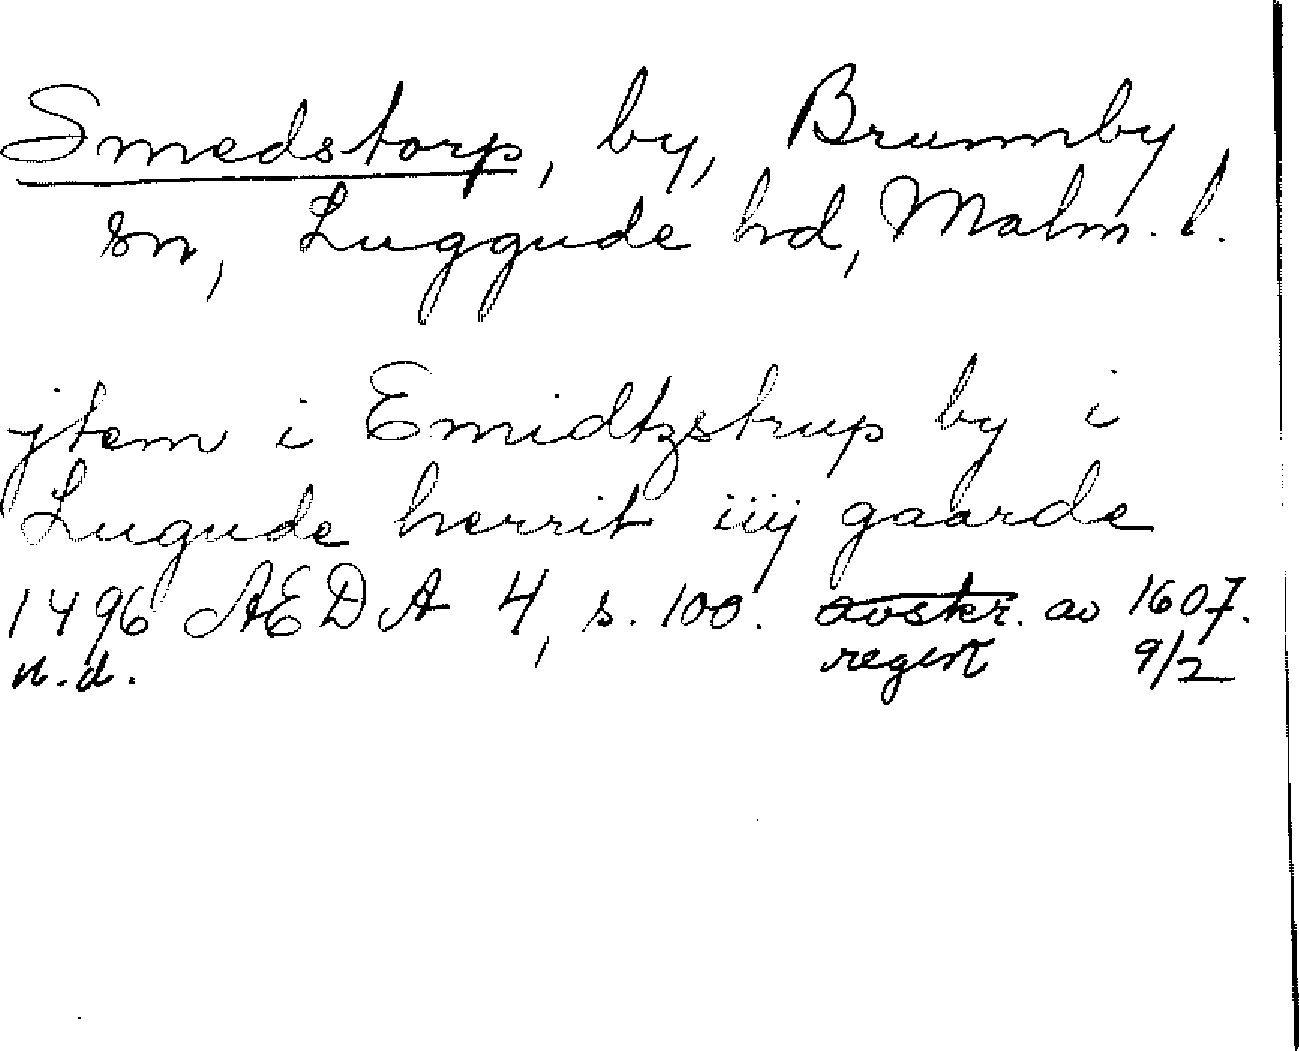 Smedstorp, by, Brunnby
sn, Luggude hd, Malm. l.
jtem i Emidtzstrup by i
Lugude herrit iiij gaarde
1496 AEDA 4, s. 100. avskr. av 1607.
n.d. regist 9/2